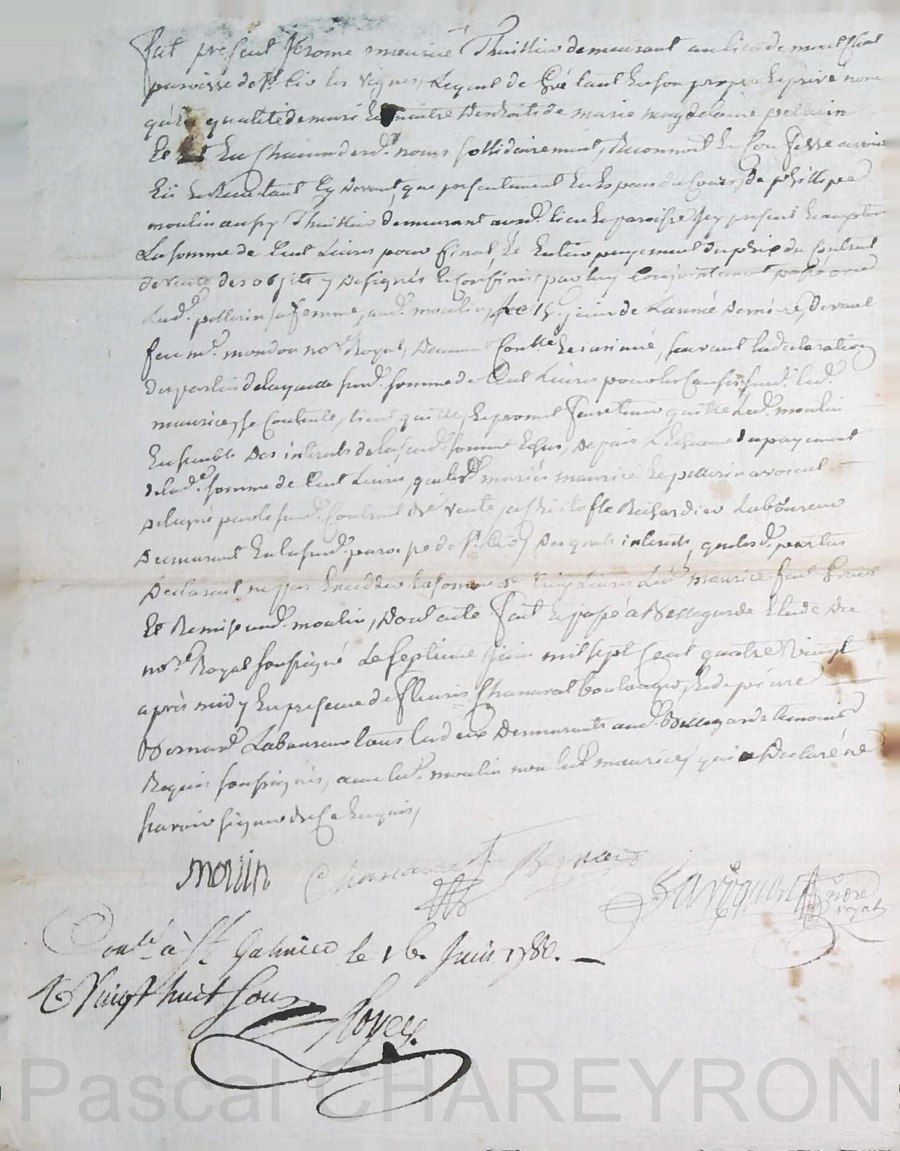 Fut présent Jerome maurice Thuillier demeurant au lieu de mont
paroisse de St Cir les vignes, Lequel de Gré tant en son propre et privé nom
qu'en qualité de mari et maitre Des droits de marie magdelaine pellerin
Et en chacun desd. noms sollidairement, Reconnoit et Confesse avoir
Eü et Recü tant Cy devant, que présentement en Espèces du Cours, de philippe
moulin aussy Thuillier demeurant aud. lieu et paroisse icy présent et acceptant
La somme de Cent Livres pour final et Entier payement du prix du Contrat
de vente des objets y désignés et Confinés par luy Conjointement passé avec
Lad. pellerin sa femme, aud. moulin, Le 15 juin de L'année Dernière, Devant
feu me. mondon nore. Royal, Duement Contlé. et insinué, suivant la declaration
des parties de laquelle susd. somme de Cent Livres pour les Causes susd. led.
maurice, se Contente, tient quitte, et promet faire tenir quitte Led. moulin
Ensemble Des interets de lad. somme Echus, Depuis L'Echéance du payement
de lad. somme de Cent Livres, que lesd. mariés maurice et pellerin avoient
Delégué par le susd. Contrat de vente, à Christofle Richardier Laboureur
Demeurant En la susd. paroisse de St. Cir, Desquels interets, que lesd. parties
Déclarent ne pas Exceder la somme de Cinq Livres Led. maurice fait Grace
Et Remise aud. moulin, Dont acte fait et passé à Bellegarde Etude du
nore. Royal soussigné Le septieme juin mil sept Cent quatre Vingt
après midy En présence de fleuris Chanavat boulanger, et de pierre
Bernard Laboureur tous les deux Demeurants aud. Bellegarde temoins
Requis soussignés, avec led. moulin non led. maurice, qui a Déclaré ne
savoir signer de ce Enquis,
moulin Chanavat Bernard
nore royal
Conlé. à St. Galmier le 16 Juin 1780.
R Vingt huit sous
Pascal CHAREYRON